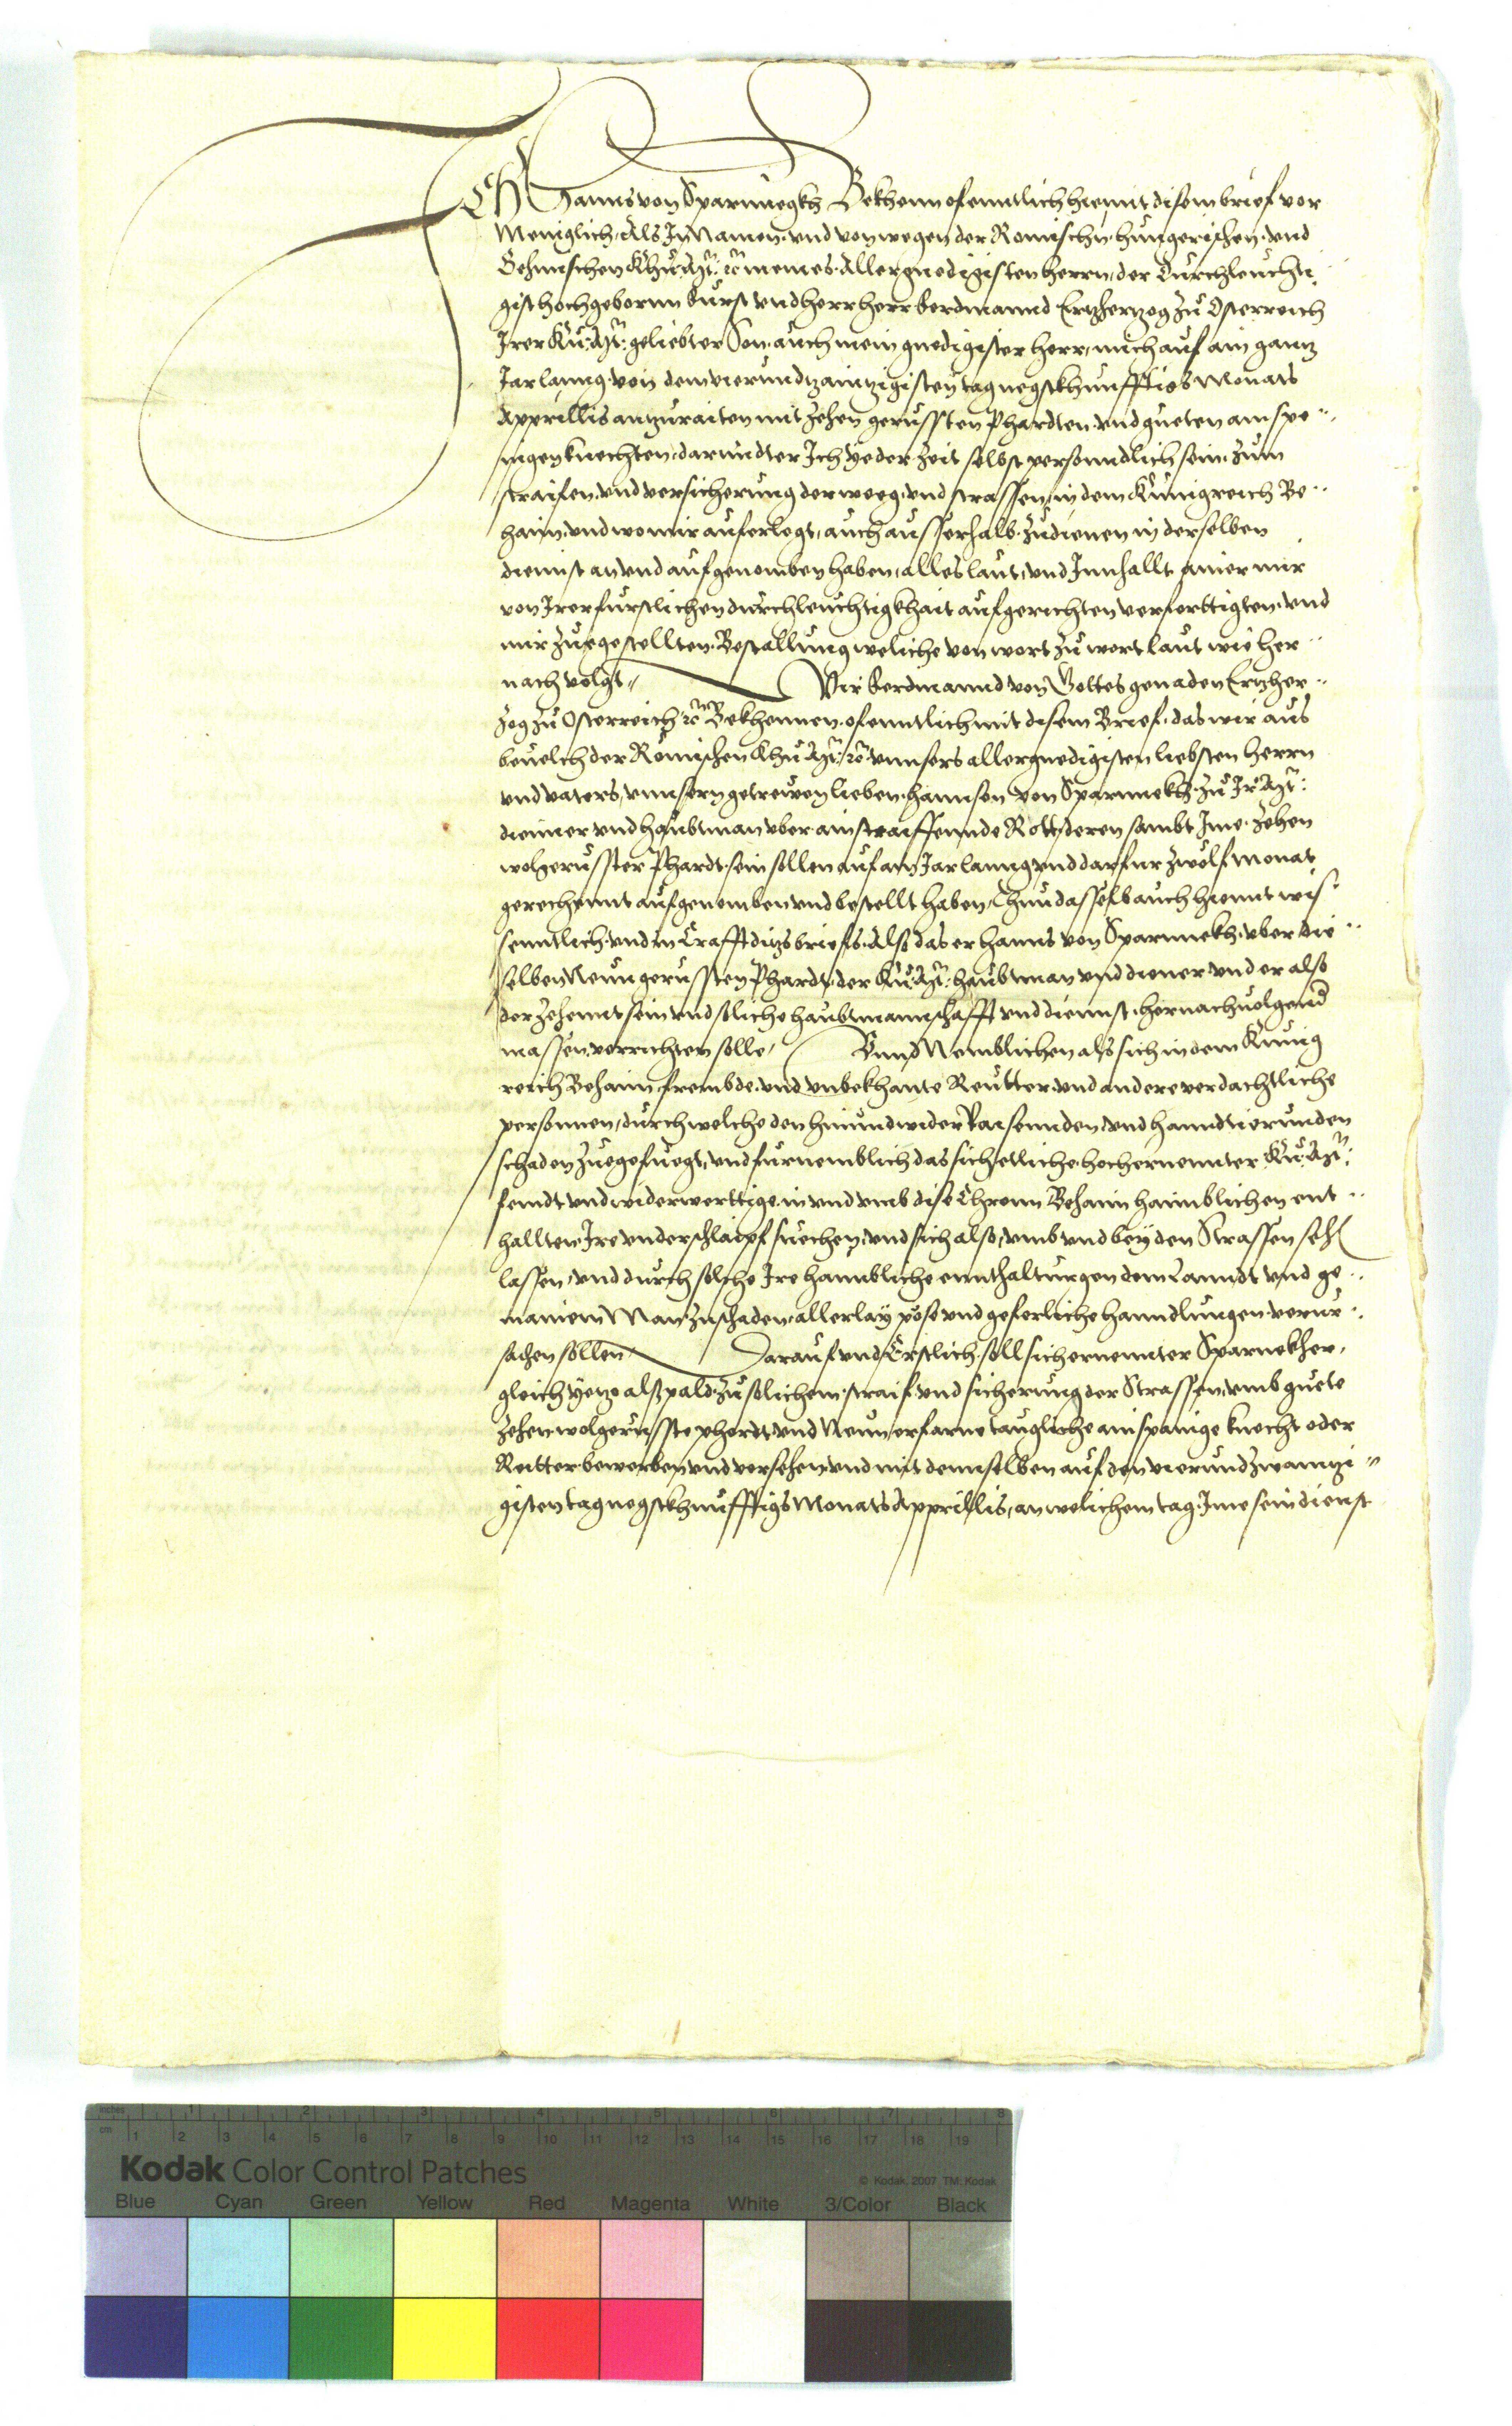 Ich Hanns von Sparnnegkh Bekhenn ofenntlich hiemit disem brief vor
Meniglich, Als In Namen und von wegen der Romischn hungerischen und
Behmischen Khü: Mt: rc meines Allergnedigisten herrn, der Durchleuchti
gist hochgeborn fürst und herr herr Ferdinannd Ertzhertzog zu Osterreich
Irer Kü: Mt: geliebter Son, auch mein gnedigister herr, mich auf ain gantz
Jar lanng von dem vierundtzaintzigisten tag negstkhunfftigs Monats
Apprillis antzuraiten mit zehen gerussten Phardten und gueten ainspe
nigen knechten, darundter Ich yeder Zeit selbst personndlich sein, zum
straifen, und versicherung der weeg und strassen, in dem Künigreich Be
haim, und wo mir auferlegt, auch ausserhalb zudienen in derselben
diennst an und aufgenomben haben, alles laut, und Innhallt ainer mir
von Irer fürstlichen durchleuchtigkhait aufgerichten verferttigten und
mir zuegestellten Bestallung weliche von wort zu wort laut wie her
nach volgt Wir Ferdinannd von Gottes genaden Ertzher
zog zu Osterreich rc Bekhennen ofenntlich mit disem Brief, das wir aus
bevelch der Römischen Khü Mt: rc unnsers allergnedigisten liebsten herrn
und vaters, unnsern getrewen lieben Hannsen von Sparnnekh zu Ir Mt:
diennер und haubtman uber ain straiffennde Rott, deren sambt Ime zehen
wolgerusster Phardt sein sollen auf ain Jar lanng und darfur zwölf monat
gerechennt aufgenomben und bestellt haben, Thun dasselb auch hiemit wis
senntlich und in Crafft ditzs briefs, Also das er Hanns von Sparnnekh uber die
selben Neun gerussten Phardt der Kü: Mt: haubtman und diener und er also
der zehennt sein und soliche haubtmannschafft und diennst hernachvolgend
massen verrichten solle, Unnd Nemblichen als sich in dem Künig
reich Behaim frembde und unbekhante Reutter und andere verdachtliche
personnen, durch welche den hin und wider Raisennden und hanndtierunden
schaden zuegefuegt, und furnemblich das sich etliche hochernennter Kü: Mt:
feindt und widerwerttige in und umb dise Chronn Behaim haimblichen ent
hallten, Ire underschlaipf suechen, und sich also, umb und bey den Strassen sehen
lassen, und durch solche Ire haimbliche enthaltungen dem Lanndt und ge
mainem Man zuschaden, allerlay pöse und geferliche hanndlungen verur
sachen sollen Darauf und Erstlich soll sich ernennter Sparnekher,
gleich yetzo alspald zu solichem straif und sicherung der Strassen, umb guete
zehen wolgerusste phardt und Neun erfarne taugliche ainspanige knecht oder
Reitter bewerben und versehen, und mit dennselben auf den vierundzwaintzi
gisten tag negstkhunfftigs Monats Apprillis, an welichem tag Ime sein dienst
inches
cm
1 2 3 4 5 6 7 8 9 10 11 12 13 14 15 16 17 18 19
Kodak Color Control Patches
© Kodak, 2007 TM: Kodak
Blue Cyan Green Yellow Red Magenta White 3/Color Black